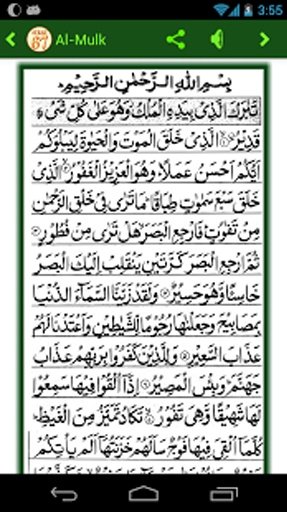 3:55
Al-Mulk
بِسْمِ اللّٰهِ الرَّحْمٰنِ الرَّحِيْمِ
تَبٰرَكَ الَّذِىْ بِيَدِهِ الْمُلْكُ وَهُوَ عَلٰى كُلِّ شَىْءٍ
قَدِيْرُ ۙ﴿۱﴾ الَّذِىْ خَلَقَ الْمَوْتَ وَالْحَيٰوةَ لِيَبْلُوَكُمْ
اَيُّكُمْ اَحْسَنُ عَمَلًا ؕ وَهُوَ الْعَزِيْزُ الْغَفُوْرُ ۙ﴿۲﴾ الَّذِىْ
خَلَقَ سَبْعَ سَمٰوٰتٍ طِبَاقًا ؕ مَا تَرٰى فِىْ خَلْقِ الرَّحْمٰنِ
مِنْ تَفٰوُتٍ ؕ فَارْجِعِ الْبَصَرَ ۙ هَلْ تَرٰى مِنْ فُطُوْرٍ ﴿۳﴾
ثُمَّ ارْجِعِ الْبَصَرَ كَرَّتَيْنِ يَنْقَلِبْ اِلَيْكَ الْبَصَرُ
خَاسِئًا وَّهُوَ حَسِيْرٌ ﴿۴﴾ وَلَقَدْ زَيَّنَّا السَّمَآءَ الدُّنْيَا
بِمَصَابِيْحَ وَجَعَلْنٰهَا رُجُوْمًا لِّلشَّيٰطِيْنِ وَاَعْتَدْنَا لَهُمْ
عَذَابَ السَّعِيْرِ ﴿۵﴾ وَلِلَّذِيْنَ كَفَرُوْا بِرَبِّهِمْ عَذَابُ
جَهَنَّمَ ؕ وَبِئْسَ الْمَصِيْرُ ﴿۶﴾ اِذَاۤ اُلْقُوْا فِيْهَا سَمِعُوْا
لَهَا شَهِيْقًا وَّهِىَ تَفُوْرُ ۙ﴿۷﴾ تَكَادُ تَمَيَّزُ مِنَ الْغَيْظِ ؕ
كُلَّمَاۤ اُلْقِىَ فِيْهَا فَوْجٌ سَاَلَهُمْ خَزَنَتُهَاۤ اَلَمْ يَاْتِكُمْ